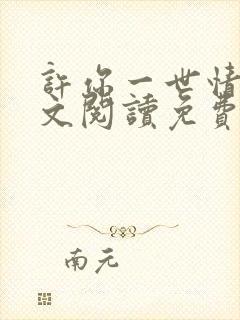 許你一世情
文閱讀免費
南元